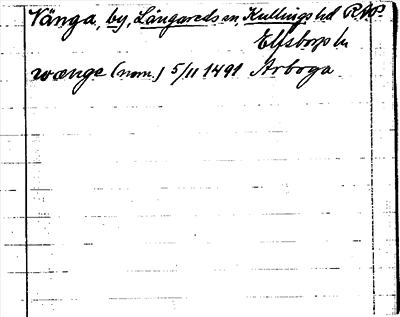 Vånga, by, Långareds sn, Kullings hd RAP.
Elfsborgs ln
wænge (nom.) 5/11 1491 Arboga